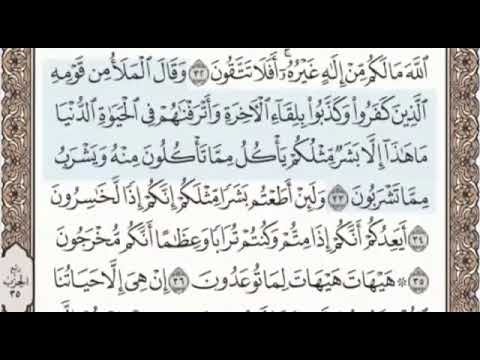 ٱللَّهَ مَا لَكُم مِّنْ إِلَٰهٍ غَيْرُهُۥٓ ۚ أَفَلَا تَتَّقُونَ ٣٢ وَقَالَ ٱلْمَلَأُ مِن قَوْمِهِ
ٱلَّذِينَ كَفَرُوا۟ وَكَذَّبُوا۟ بِلِقَآءِ ٱلْءَاخِرَةِ وَأَتْرَفْنَٰهُمْ فِى ٱلْحَيَوٰةِ ٱلدُّنْيَا
مَا هَٰذَآ إِلَّا بَشَرٌ مِّثْلُكُمْ يَأْكُلُ مِمَّا تَأْكُلُونَ مِنْهُ وَيَشْرَبُ
مِمَّا تَشْرَبُونَ ٣٣ وَلَئِنْ أَطَعْتُم بَشَرًا مِّثْلَكُمْ إِنَّكُمْ إِذًا لَّخَٰسِرُونَ
٣٤ أَيَعِدُكُمْ أَنَّكُمْ إِذَا مِتُّمْ وَكُنتُمْ تُرَابًا وَعِظَٰمًا أَنَّكُم مُّخْرَجُونَ
٣٥ ۞ هَيْهَاتَ هَيْهَاتَ لِمَا تُوعَدُونَ ٣٦ إِنْ هِىَ إِلَّا حَيَاتُنَا
ربع
الحزب
٣٥